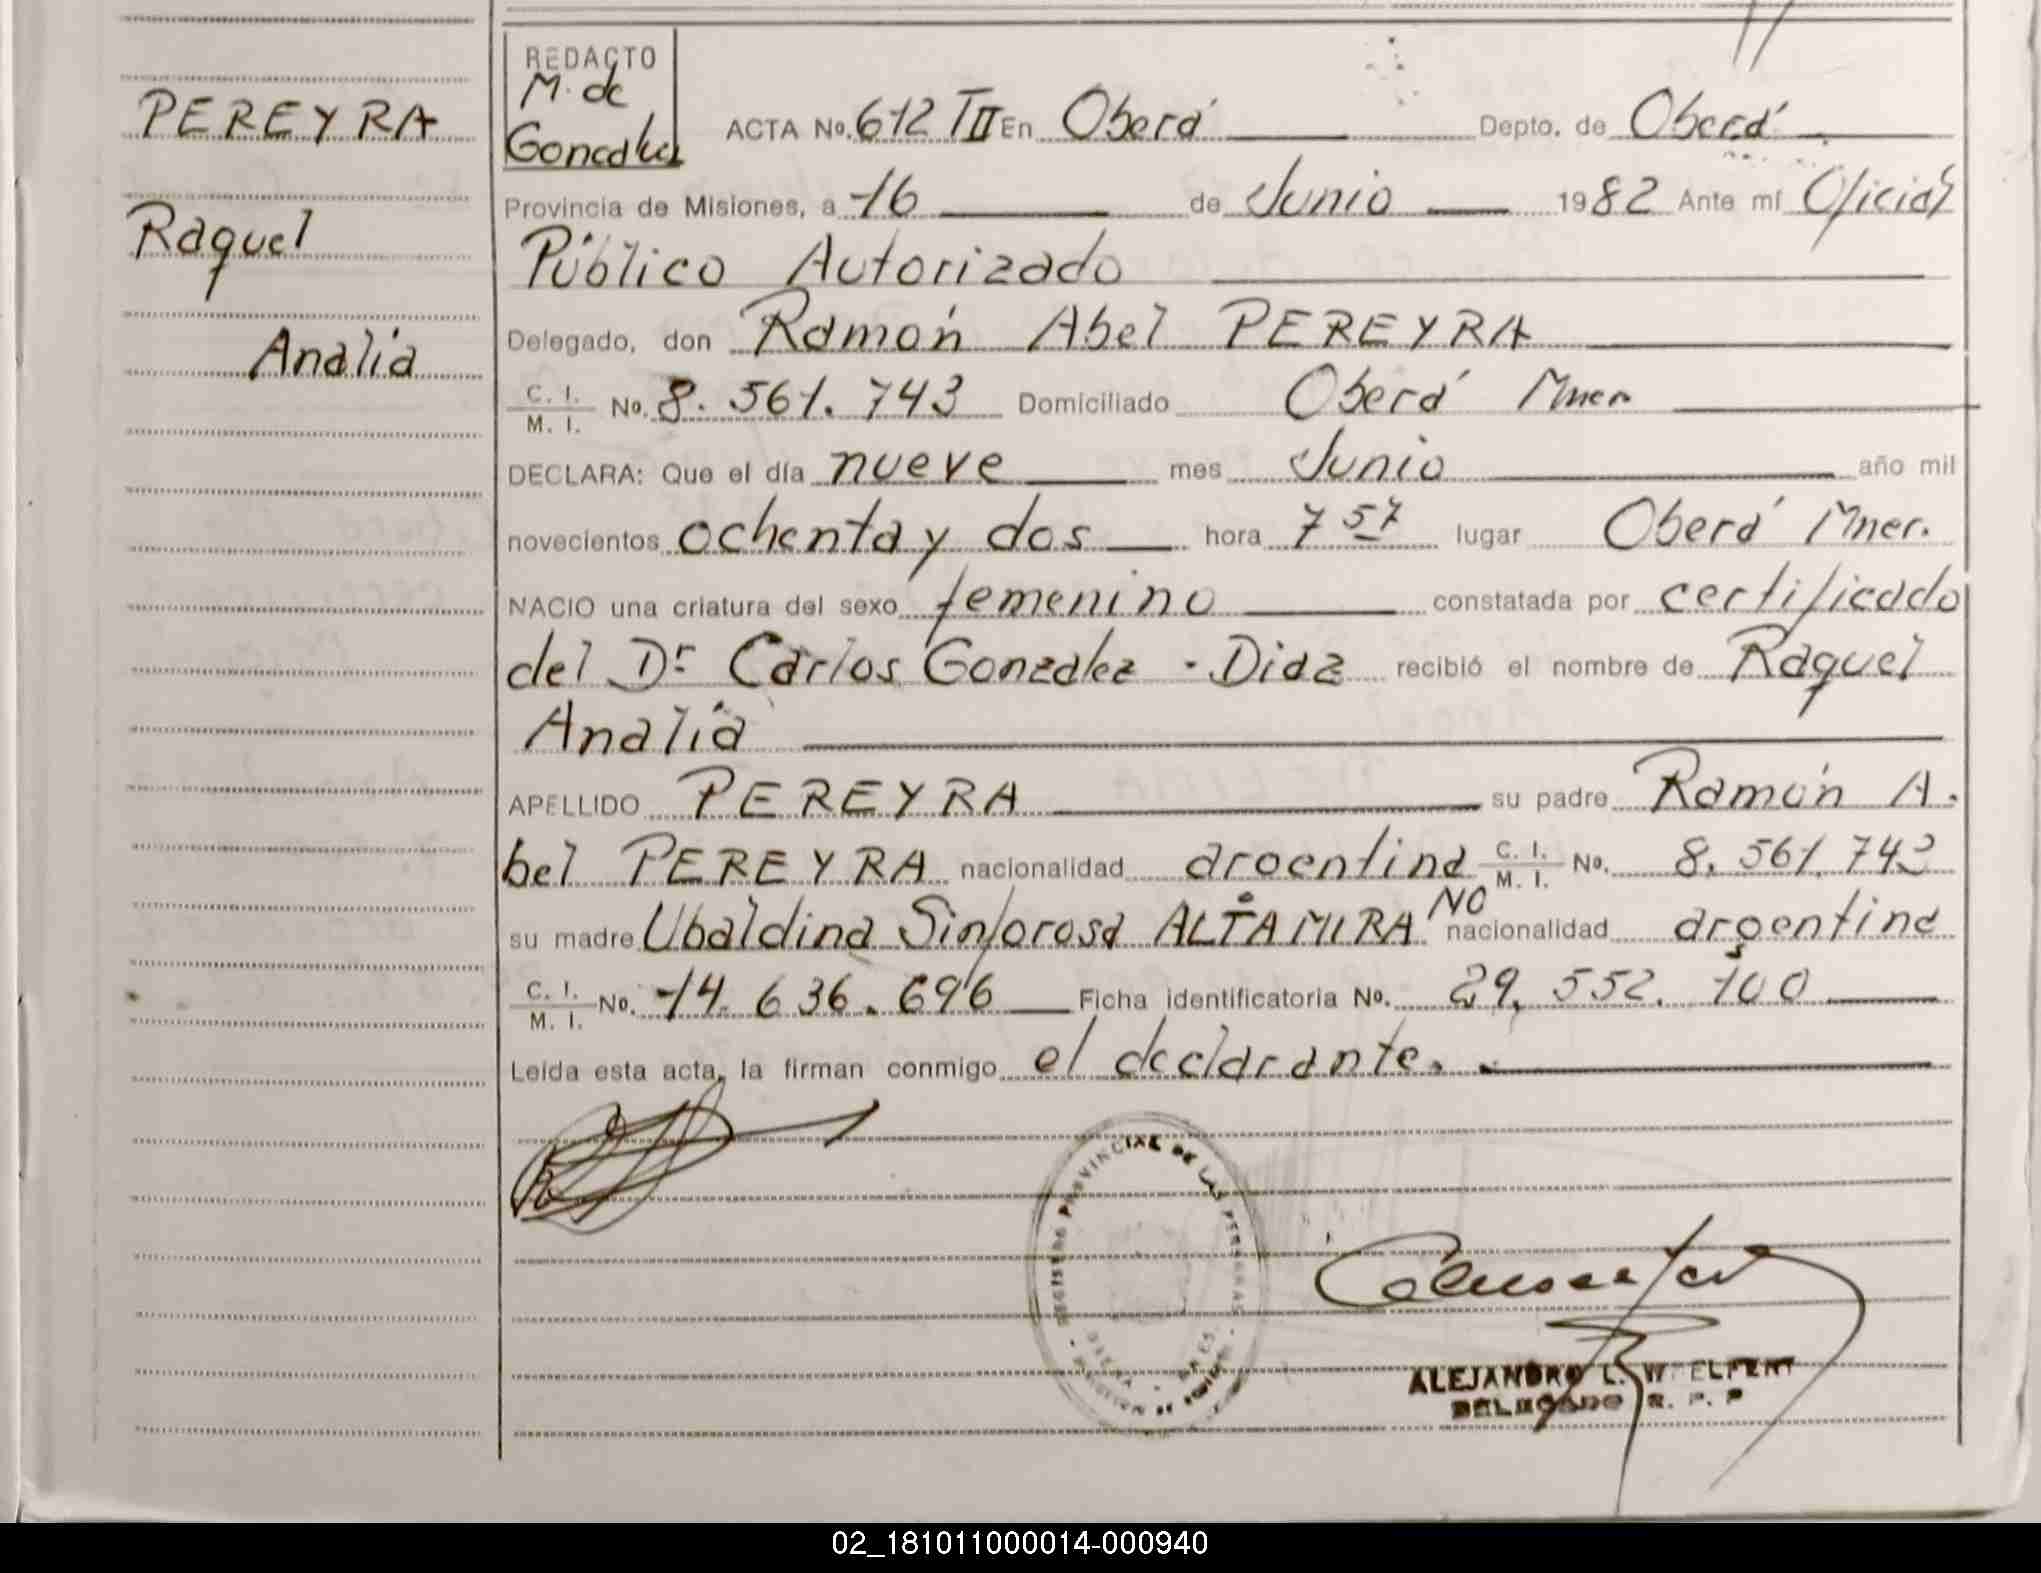 PEREYRA
Raquel
Analía
REDACTO
M. de
Gonzalez
ACTA No. 612 TII En Oberá Depto. de Oberá
Provincia de Misiones, a 16 de Junio 1982 Ante mí Oficial
Público Autorizado
Delegado, don Ramón Abel PEREYRA
C. I. M. I. No. 8.561.743 Domiciliado Oberá Mnes
DECLARA: Que el día nueve mes Junio año mil
novecientos ochenta y dos hora 7 57 lugar Oberá Mnes.
NACIO una criatura del sexo femenino constatada por certificado
del Dr Carlos Gonzalez - Diaz recibió el nombre de Raquel
Analía
APELLIDO PEREYRA su padre Ramón A.
bel PEREYRA nacionalidad argentina C. I. M. I. No. 8.561.743
su madre Ubaldina Sinforosa ALTAMIRANO nacionalidad argentina
C. I. M. I. No. 14.636.696 Ficha identificatoria No. 29.552.100
Leída esta acta, la firman conmigo el declarante.
REGISTRO PROVINCIAL DE LAS PERSONAS
ALEJANDRO L. W. ELPERT
DELEGADO R. P. P
02_181011000014-000940